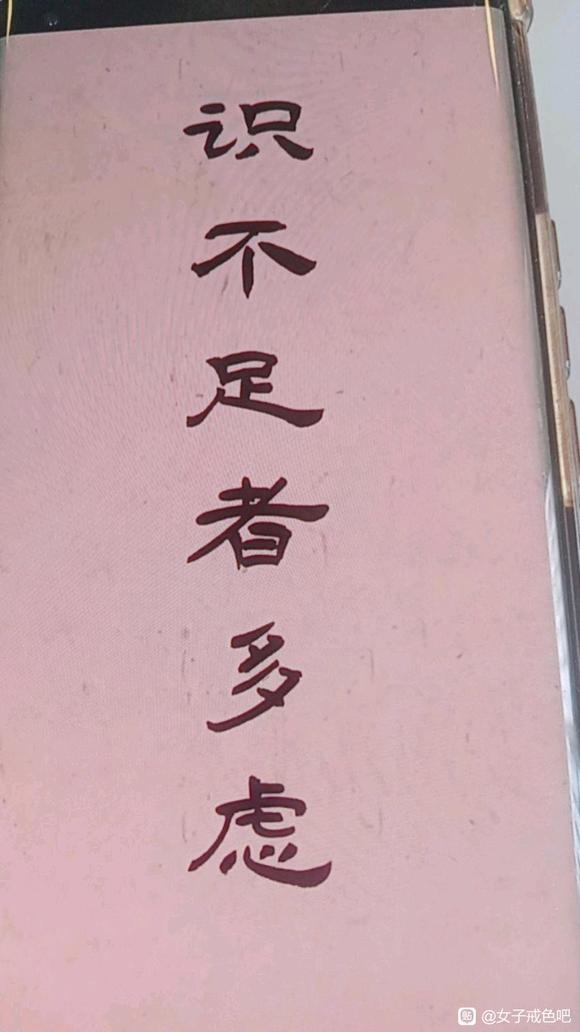 识不足者多虑
贴 @女子戒色吧